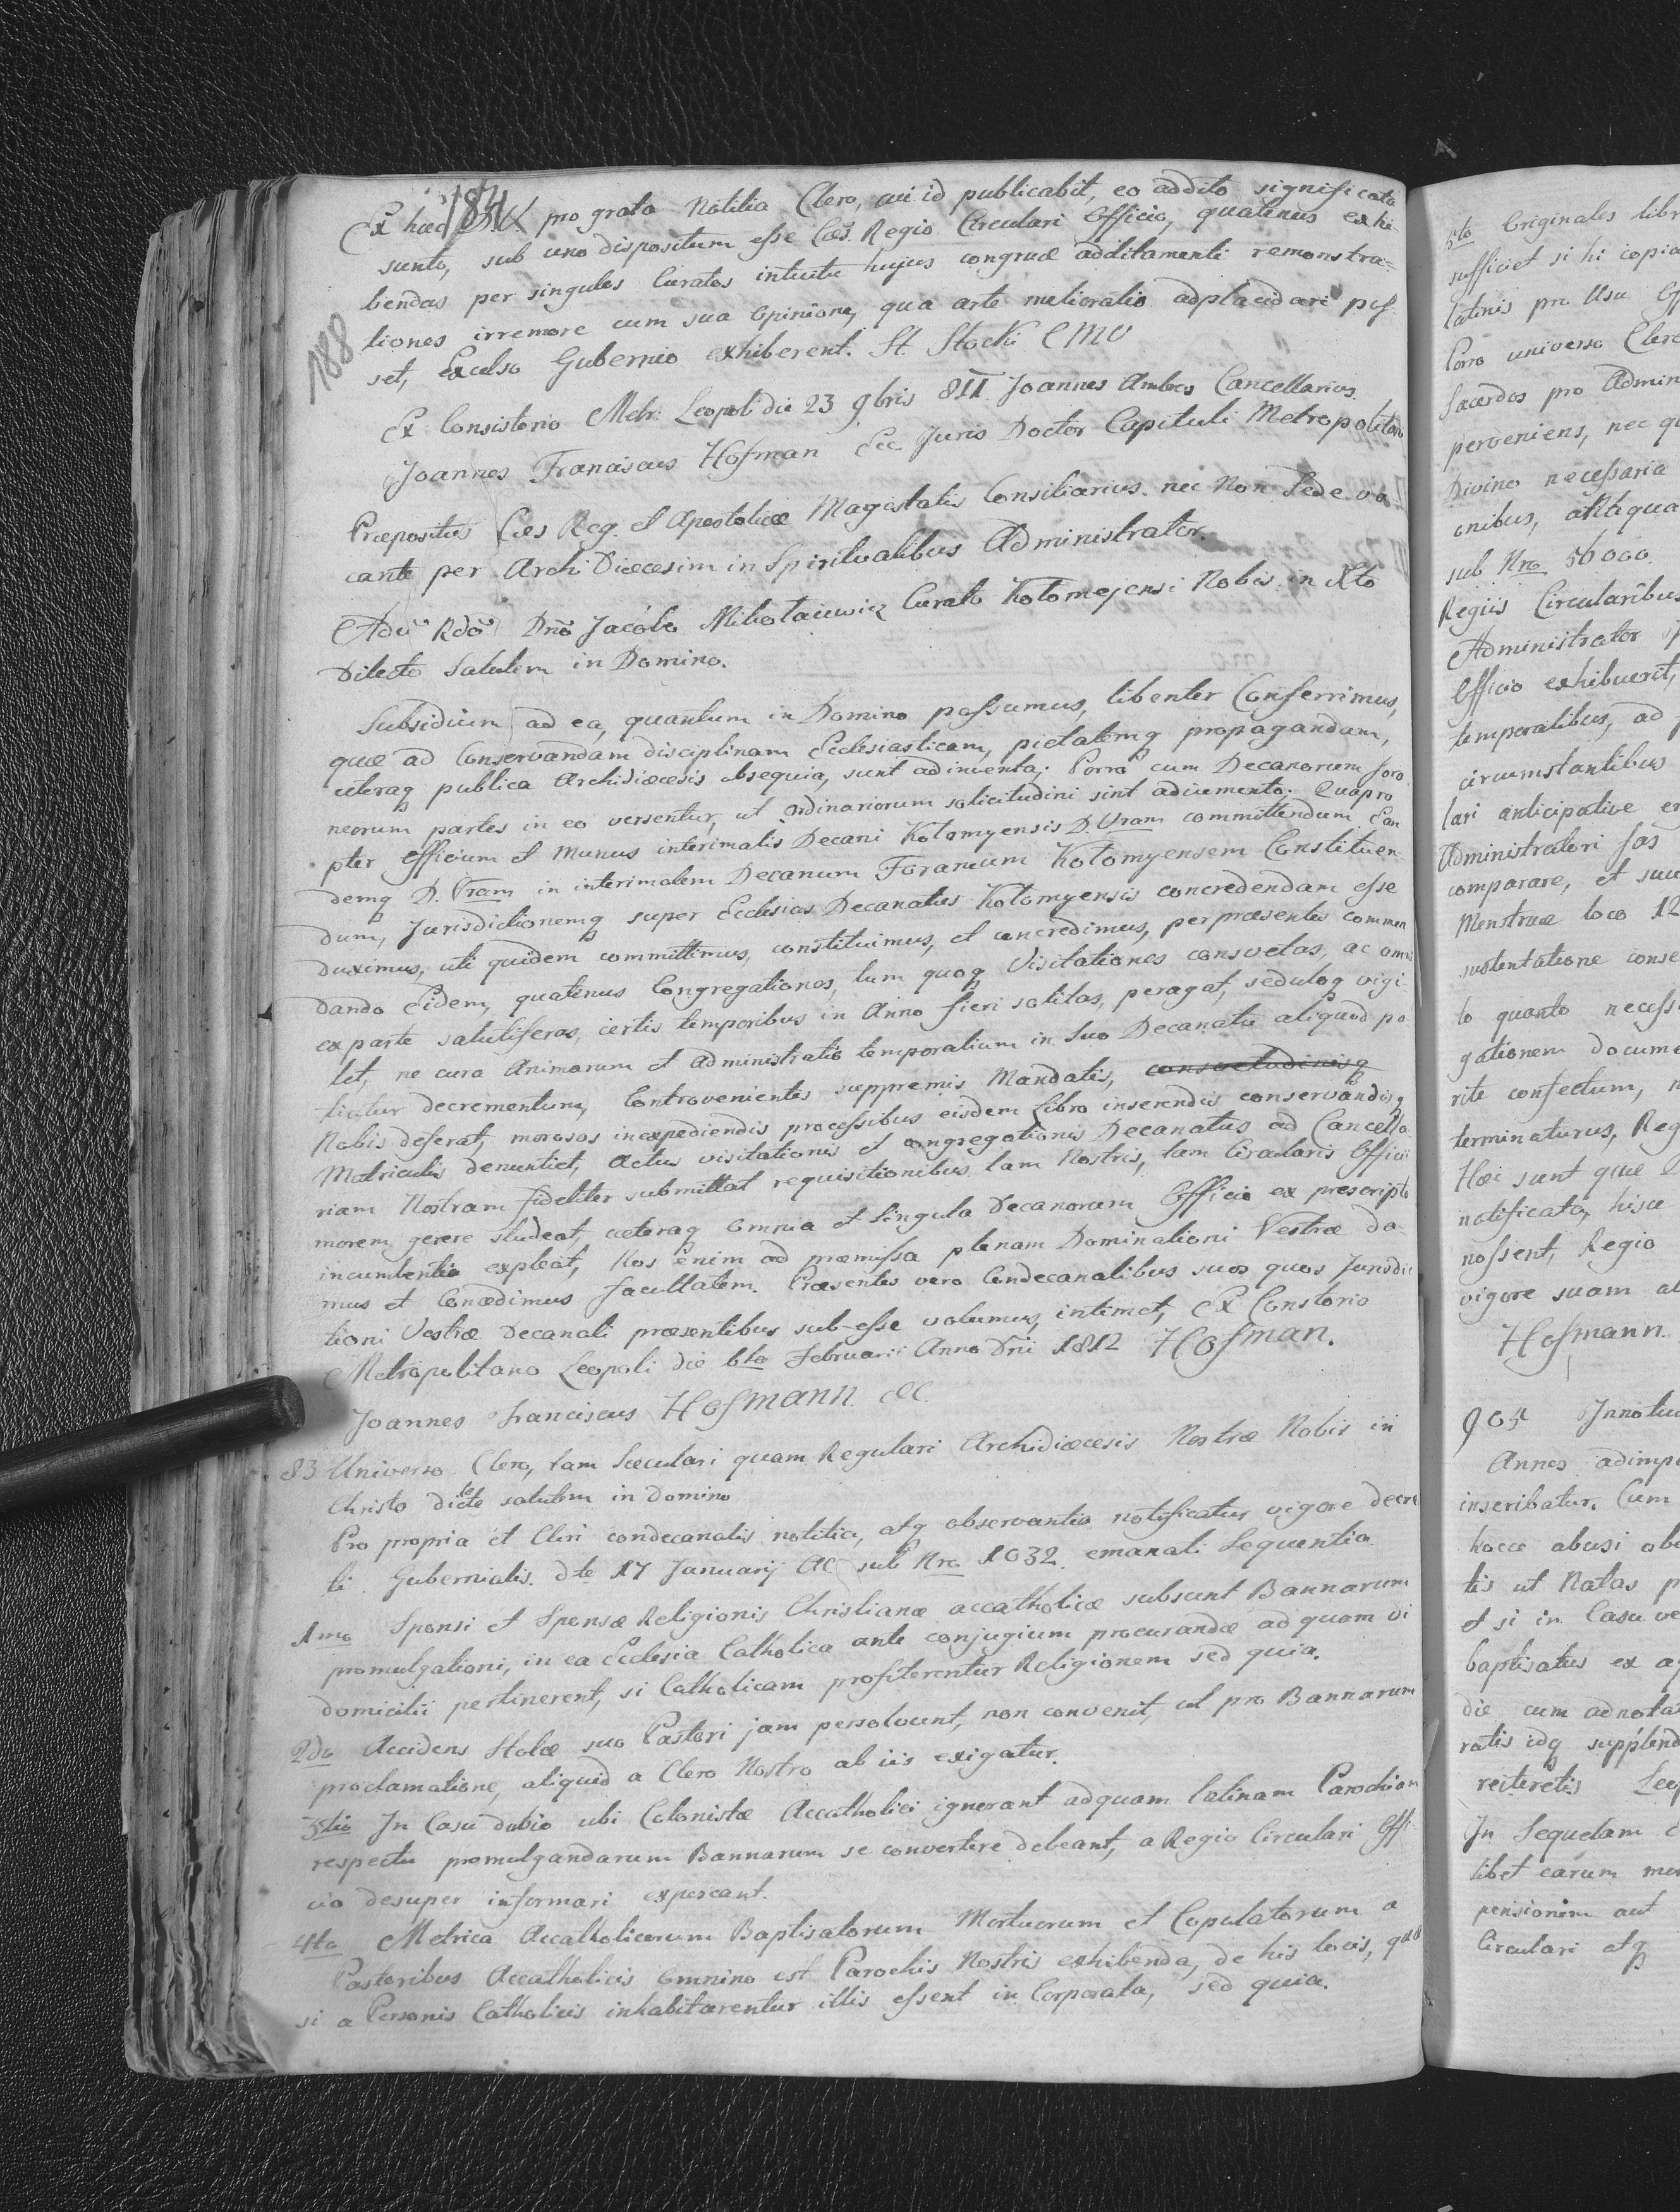 184
188
Ex hoc pro grata Notitia Clero, cui id publicabit, eo addito significata
sunto, sub uno dispositum esse Cæs. Regio Circulari Officio, quatenus exhi
bendas per singulos Curatos intuitu hujus congruæ additamenti remonstra-
tiones irremore cum sua Opinione, qua arte melioratio adplacidari pos
set, Excelso Gubernio exhiberent. St Stocki CMO
Ex Consistorio Metr: Leopoli die 23 9bris 811. Joannes Ambros Cancellarius.
Joannes Franciscus Hofman Ecc Juris Doctor Capituli Metropolitani
Præpositus Cæs Reg. et Apostolicæ Magistatis Consiliarius nec Non Sede va
cante per ArchiDiœcesim in Spiritualibus Administrator.
Adm Rdo Dno Jacobo Mikołaiewicz Curato Kołomejensi Nobis in Xto
Dilecto Salutem in Domino.
Subsidium ad ea, quantum in Domino possumus, libenter Conferrimus,
quæ ad Conservandam disciplinam Ecclesiasticam, pietatemq propagandam,
ceteraq publica Archidiœcesis obsequia, sunt adinventa; Porro cum Decanorum foro
neorum partes in eo versentur, ut Ordinariorum solicitudini sint adiumento; Quapro
pter Officium et Munus interimalis Decani Kołomyensis D. Vram committendum Ean
demq D. Vram in interimalem Decanum Foraneum Kołomyensem Constituen
dum, Jurisdictionemq super Ecclesias Decanatus Kołomyensis concredendam esse
duximus, uti quidem committimus, constituimus, et concredimus, per præsentes commen
dando Eidem, quatenus Congregationes, tum quoq Visitationes consvetas, ac omni
ex parte salutiferas, certis temporibus in Anno fieri solitas, peragat, seduloq vigi
let, ne cura Animarum et administratio temporalium in Suo Decanatu aliquod pa
tiatur decrementum, Controvenientes suppremis Mandatis, consvetudinisq
Nobis deferat, morosos in expediendis processibus eisdem Libro inserendis conservandisq
Matriculis denuntiet, Actus visitationis et congregationis Decanatus ad Cancella
riam Nostram fideliter submittat requisitionibus tam Nostris, tam Circularis Officii
morem gerere studeat, cæteraq Omnia et Singula Decanorum Officio ex prescripto
incumbentia expleat, Nos enim ad præmissa plenam Dominationi Vestræ da
mus et Concedimus facultatem. Præsentes vero Condecanalibus suos quos Jurisdic
tioni Vestræ Decanali præsentibus sub-esse volumus, intimet, Ex Constorio
Metropolitano Leopoli die 6ta Februarii Anno Dni 1812 Hofman.
Joannes Franciscus Hofmann &c
83 Universo Clero, tam Sæculari quam Regulari Archidiœcesis Nostræ Nobis in
Christo dilecte salutem in Domino
Pro propria et Cleri condecanalis notitia, atq observantia notificatur vigore decre
ti Gubernialis dto 17 Januarij ac sub Nro 1032. emanati Sequentia
1mo Sponsi et Sponsæ Religionis Christianæ accatholicæ subsunt Bannarum
promulgationi, in ea Ecclesia Catholica ante conjugium procurandæ ad quam vi
domicilii pertinerent, si Catholicam profiterentur Religionem sed quia.
2do Accidens Stolæ suo Pastori jam persolvunt, non convenit, ut pro Bannarum
proclamatione, aliquid a Clero Nostro ab iis exigatur.
3tio In Casu dubio ubi Colonistæ Accatholici ignorant ad quam latinam Parochiam
respectu promulgandarum Bannarum se convertere debeant, a Regio Circulari Offi
cio desuper informari exposcant.
4to Metrica Accatholicorum Baptisatorum Mortuorum et Copulatorum a
Pastoribus Accatholicis Omnino est Parochis Nostris exhibenda, de his locis, quæ
si a Personis Catholicis inhabitarentur illis essent in Corporata, sed quia.
5to Originales libr
sufficiet si hi copia
latinis pro Usu Off
Porro universo Clero
Sacerdos pro Admin
perveniens, nec qu
Divino necessaria
onibus, antequa
sub Nro 56000.
Regiis Circularibus
Administrator
Officio exhibuerit,
temporalibus, ad
circumstantibus
lari anticipative
Administratori fas
comparare, et suu
Menstruæ loco 12
sustentatione conse
to quanto necess
gationem docume
rite confectum,
terminaturus, Reg
Hæi sunt quæ
notificata, hisce
nossent, Regio
vigore suam
Hofmann.
904 Innotu
Annos adimp
inseribatur. Cum
hocce abusi
tis ut Natos p
et si in Casu ve
baptisatus ex
die cum adnota
ratis idq supplend
reiteretis Leo
In Sequelam
libet earum
pensionem aut
Circulari atq